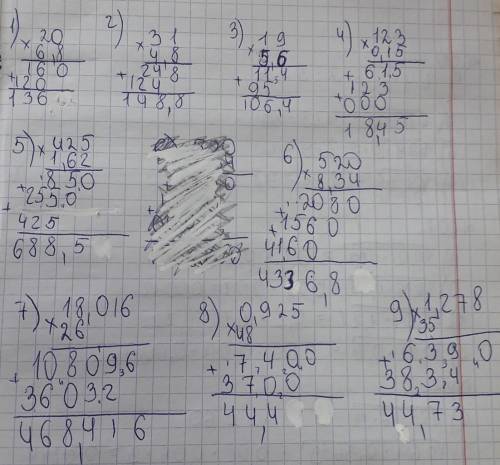 1) × 20
6,8
160
+ 120
136
2) × 31
4,8
24,8
+ 124
148,8
3) × 19
5,6
11,4
+ 95
106,4
4) × 123
0,15
+ 6,1,5
123
+ 000
18,45
5) × 425
1,62
850
+ 2550
+ 425
688,5
6) × 520
8,34
2080
+ 1560
4160
4336,8
7) × 18,016
26
10809,6
+ 3603,2
468,416
8) × 0,925
48
7,400
+ 3700
44,4
9) × 1,278
35
6,390
+ 38,34
44,73